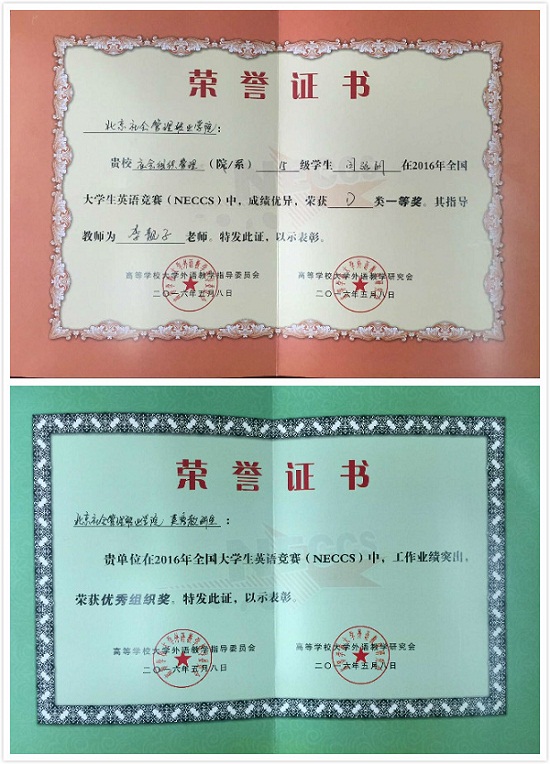 荣誉证书
北京社会管理职业学院：
贵校 应急组织管理 （院/系） 15 级学生 在2016年全国
大学生英语竞赛（NECCS）中，成绩优异，荣获 D 类一等奖。其指导
教师为 李靓子 老师。特发此证，以示表彰。
高等学校大学外语教学指导委员会 高等学校大学外语教学研究会
二〇一六年五月八日 二〇一六年五月八日
NECCS
荣誉证书
北京社会管理职业学院 英语教研室：
贵单位在2016年全国大学生英语竞赛（NECCS）中，工作业绩突出，
荣获优秀组织奖。特发此证，以示表彰。
高等学校大学外语教学指导委员会 高等学校大学外语教学研究会
二〇一六年五月八日 二〇一六年五月八日
NECCS